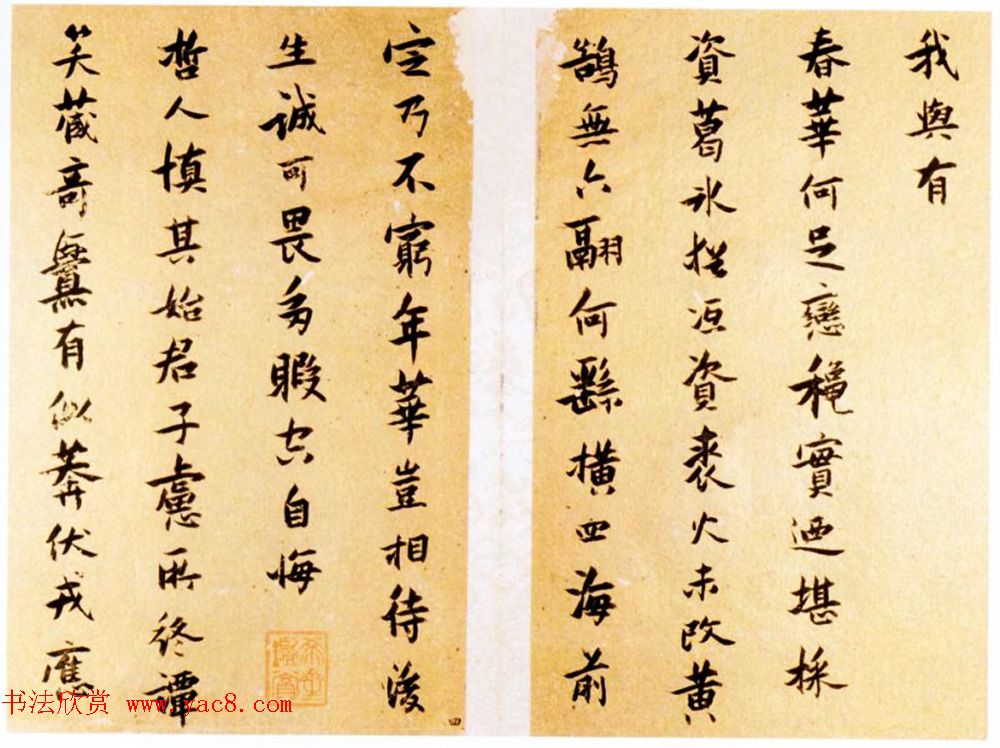 我與有
春華何足戀穐實迺堪採
資葛氷沍資裘火未改黄
鵠無六翮何繇橫四海前
定乃不窮年華豈相待後
生誠可畏多暇自悔
哲人慎其始君子慮所終譚
笑蔵奇釁有似莽伏戎應
四
书法欣赏 www.yac8.com